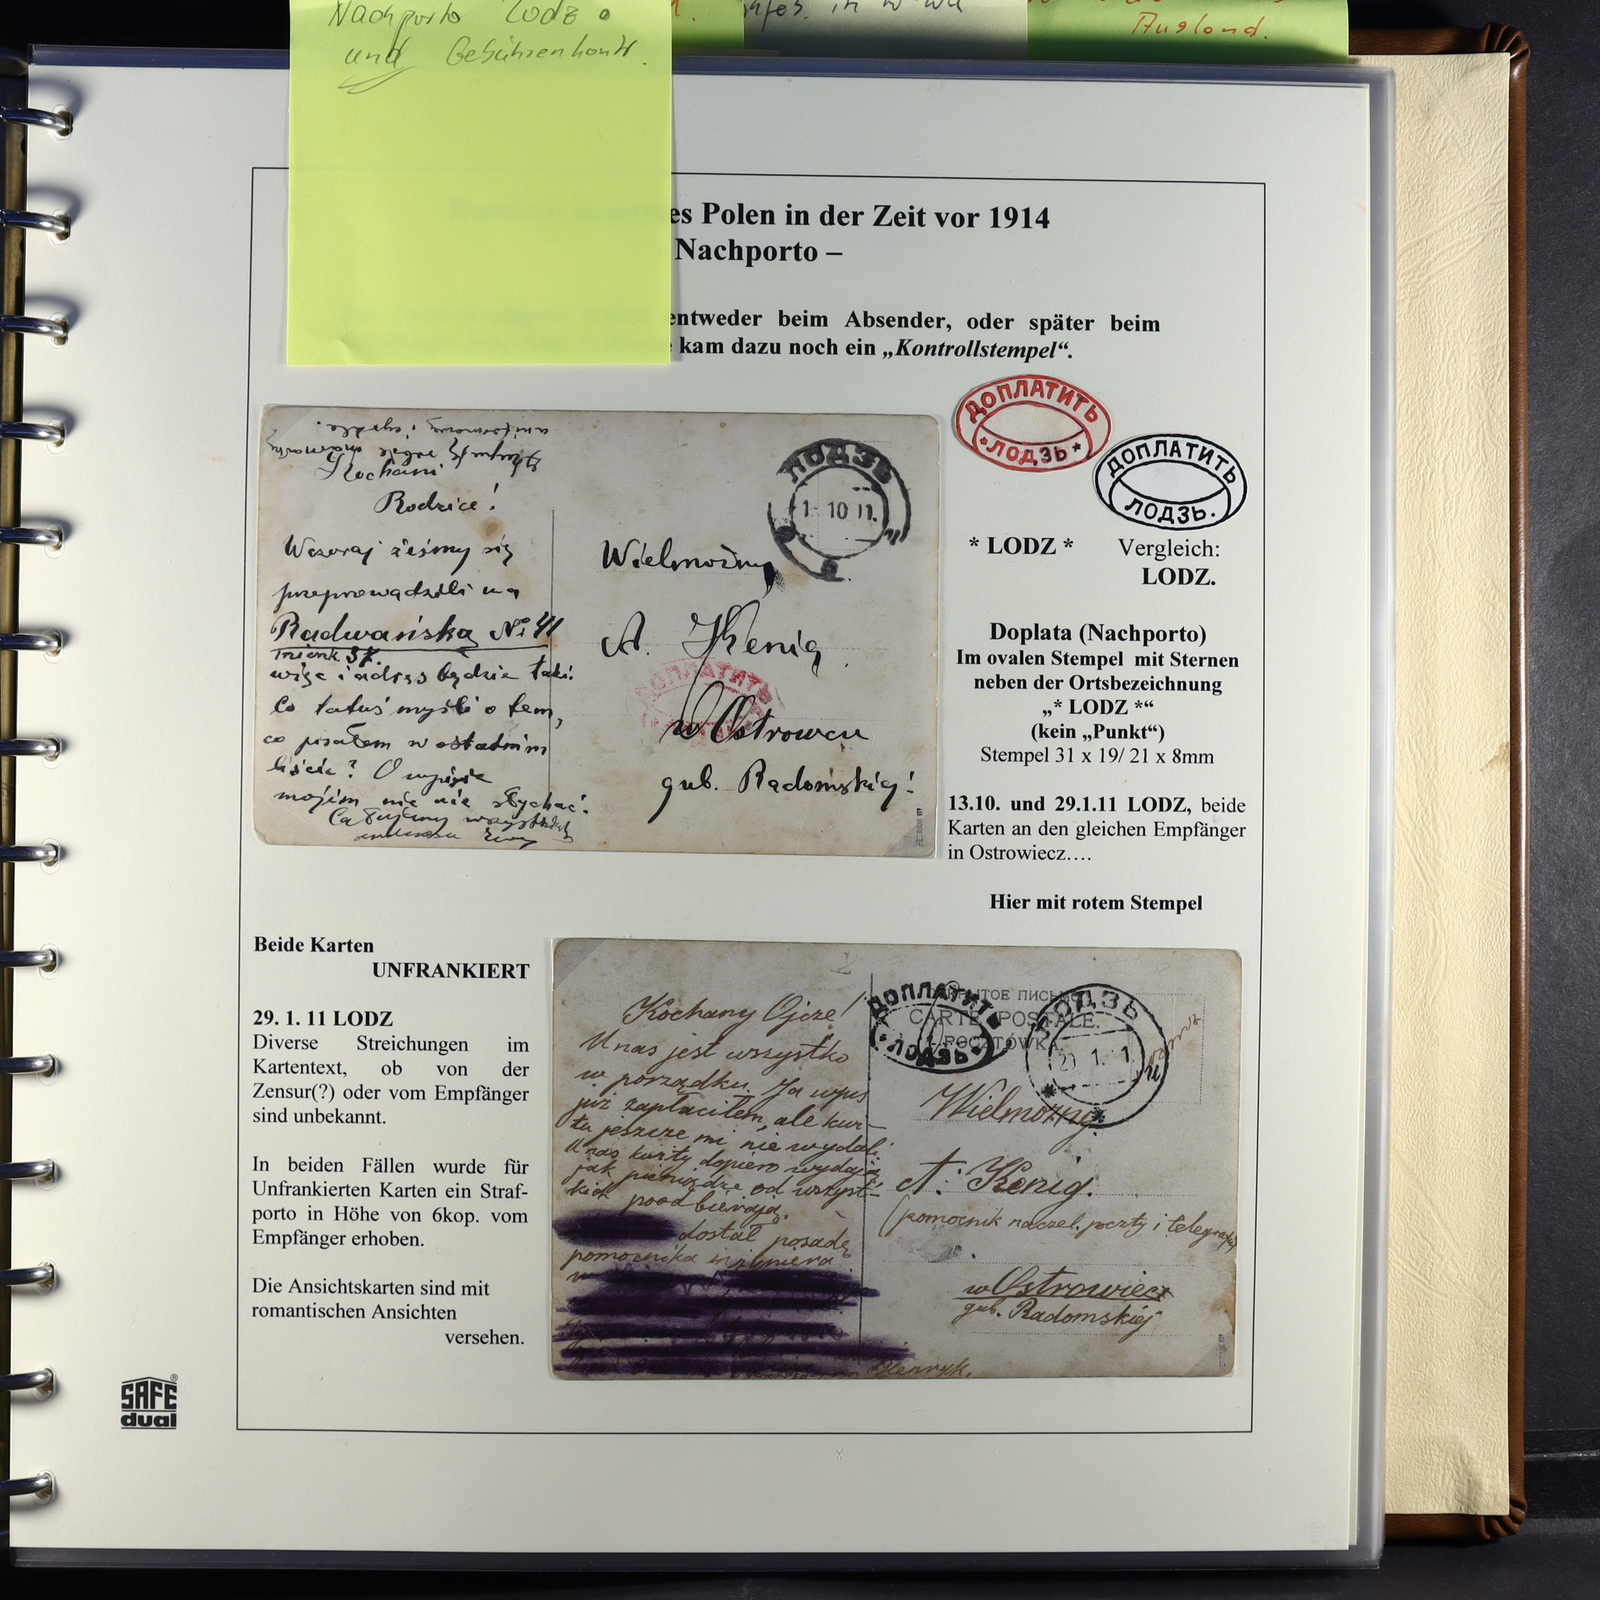 Nachporto Lodz
und Gebührenkontr.
in
Ausland.
es Polen in der Zeit vor 1914
Nachporto –
entweder beim Absender, oder später beim
kam dazu noch ein „Kontrollstempel“.
ДОПЛАТИТЬ
*ЛОДЗЬ*
ДОПЛАТИТЬ
ЛОДЗЬ.
* LODZ *
Vergleich:
LODZ.
Doplata (Nachporto)
Im ovalen Stempel mit Sternen
neben der Ortsbezeichnung
„* LODZ *“
(kein „Punkt“)
Stempel 31 x 19/ 21 x 8mm
13.10. und 29.1.11 LODZ, beide
Karten an den gleichen Empfänger
in Ostrowiecz….
Hier mit rotem Stempel
Kochani
Rodzice!
Wczoraj żeśmy się
przeprowadzili na
Radwańską № 41
więc i adres będzie taki.
Co tatuś myśli o tem,
co pisałem w ostatnim
liście? O wpisie
mojim nic nie słychać.
Całujemy wszystkich
ЛОДЗЬ
1- 10 11.
Wielmożny
A. Kenig
ДОПЛАТИТЬ
w Ostrowcu
gub. Radomskiej
Beide Karten
UNFRANKIERT
29. 1. 11 LODZ
Diverse Streichungen im
Kartentext, ob von der
Zensur(?) oder vom Empfänger
sind unbekannt.
In beiden Fällen wurde für
Unfrankierten Karten ein Straf-
porto in Höhe von 6kop. vom
Empfänger erhoben.
Die Ansichtskarten sind mit
romantischen Ansichten
versehen.
Kochany Ojcze!
U nas jest wszystko
w porządku. Ja wpis
już zapłaciłem, ale kwi-
tu jeszcze mi nie wydali.
U nas kwity dopiero wydają
jak pieniądze od wszyst-
kich poodbierają.
dostał posadę
pomocnika inżyniera
Henryk.
ДОПЛАТИТЬ
*ЛОДЗЬ*
ПИСЬМО
CARTE POSTALE.
POCZTÓWKA
ЛОДЗЬ
1. 1
Wielmożny
A. Kenig.
(pomocnik naczel. poczty i telegrafu)
w Ostrowiecz
gub. Radomskiej
SAFE®
dual